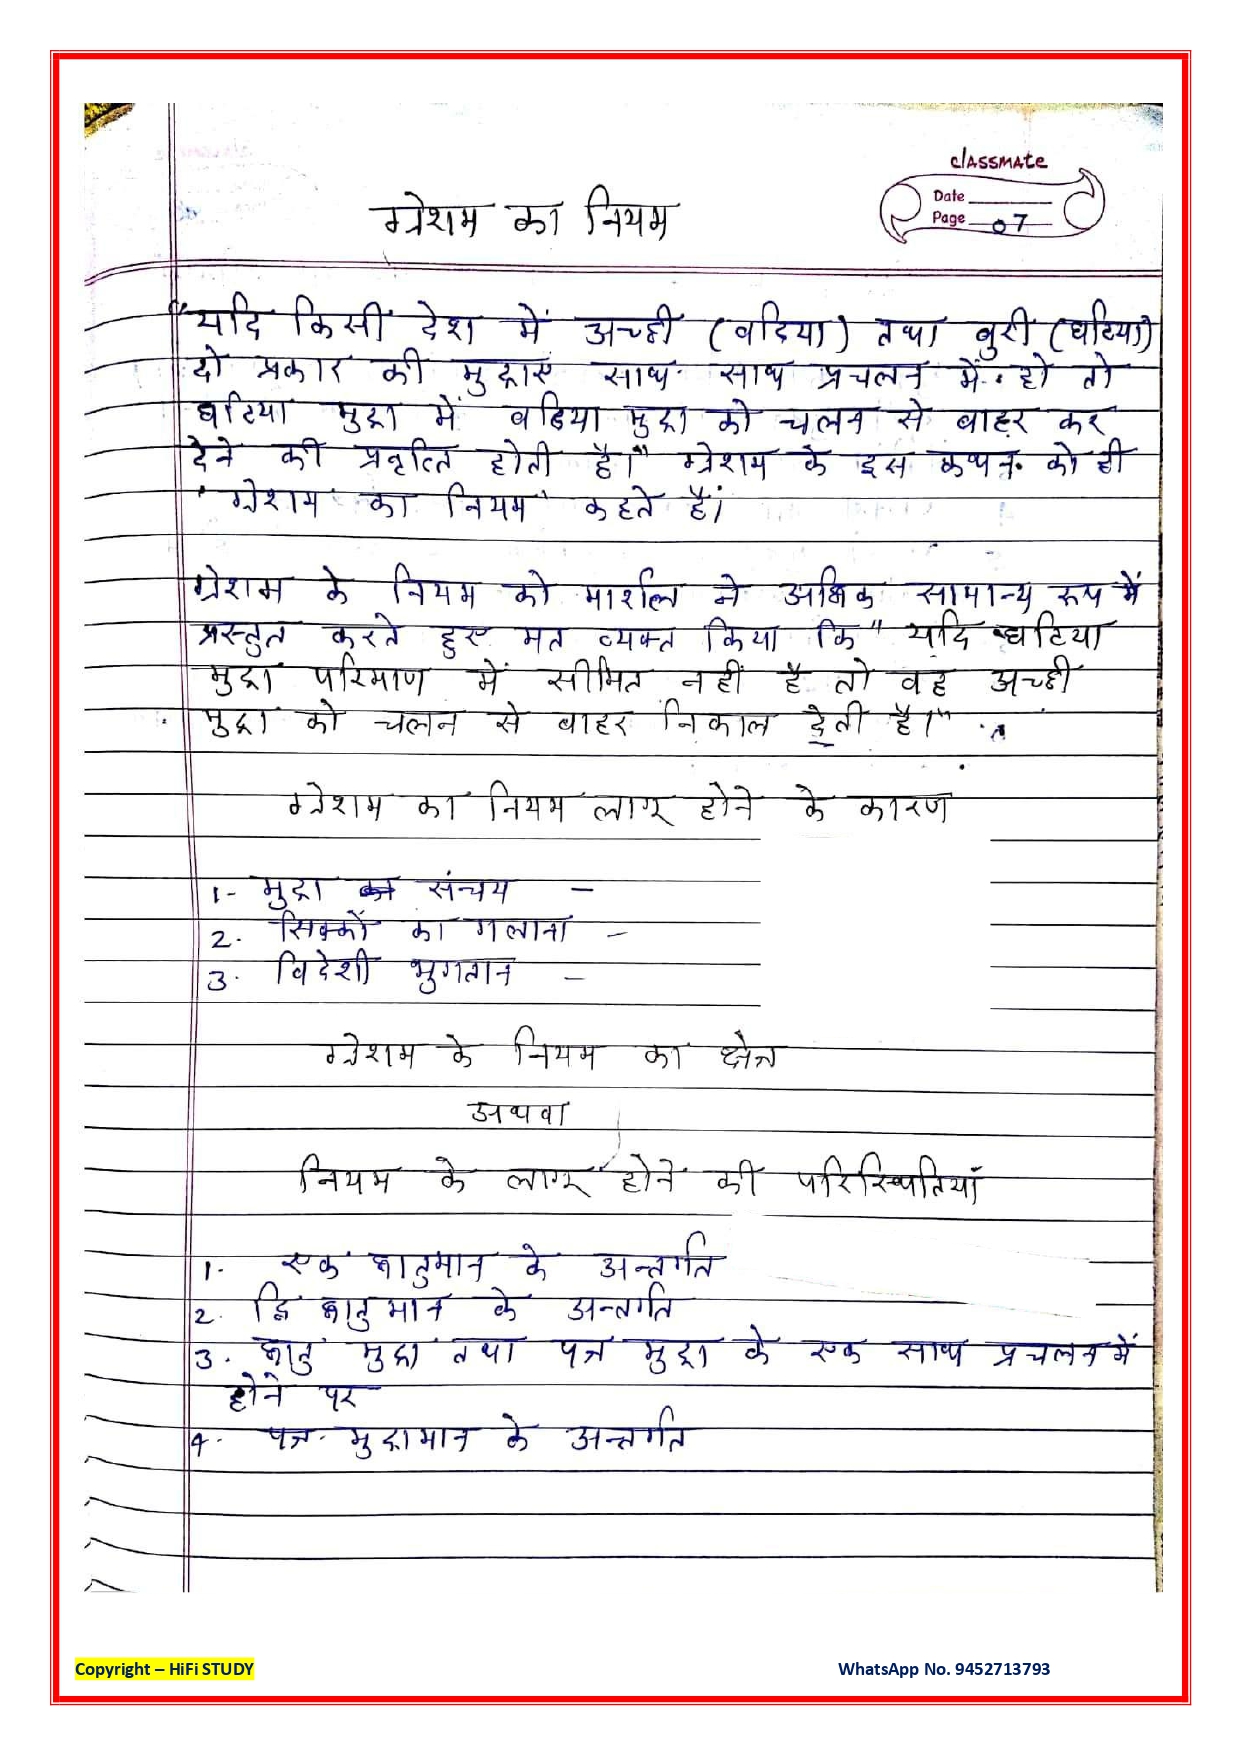 classmate
Date
Page 07
ग्रेशम का नियम
"यदि किसी देश में अच्छी (बढिया) तथा बुरी (घटिया)
दो प्रकार की मुद्राएं साथ साथ प्रचलन में हो तो
घटिया मुद्रा में बढिया मुद्रा को चलन से बाहर कर
देने की प्रवृत्ति होती है।" ग्रेशम के इस कथन को ही
'ग्रेशम का नियम' कहते हैं।
ग्रेशम के नियम को मार्शल ने अधिक सामान्य रूप में
प्रस्तुत करते हुए मत व्यक्त किया कि "यदि घटिया
मुद्रा परिमाण में सीमित नहीं है तो वह अच्छी
मुद्रा को चलन से बाहर निकाल देती है।"
ग्रेशम का नियम लागू होने के कारण
1- मुद्रा का संचय -
2. सिक्कों का गलाना -
3. विदेशी भुगतान -
ग्रेशम के नियम का क्षेत्र
अथवा
नियम के लागू होने की परिस्थितियाँ
1. एक धातुमान के अन्तर्गत
2. द्वि धातुमान के अन्तर्गत
3. धातु मुद्रा तथा पत्र मुद्रा के एक साथ प्रचलन में
होने पर
4. पत्र मुद्रामान के अन्तर्गत
Copyright – HiFi STUDY
WhatsApp No. 9452713793